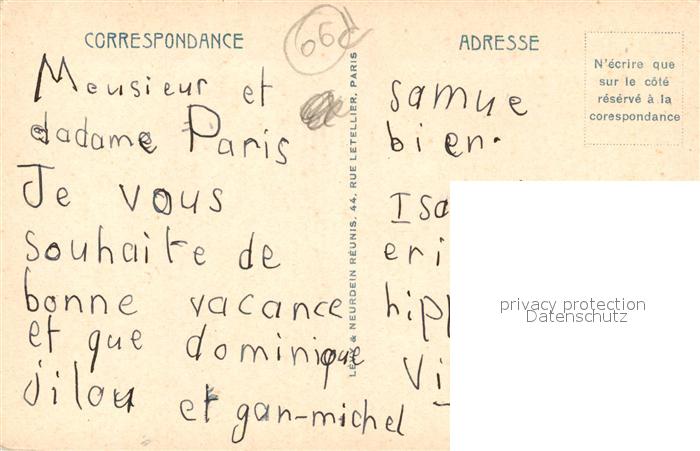 CORRESPONDANCE
66d
Mousieur et
dadame Paris
Je vous
souhaite de
bonne vacance
et que dominique
jilou et gan-michel
LÉVY & NEURDEIN RÉUNIS, 44, RUE LETELLIER, PARIS
ADRESSE
N'écrire que
sur le côté
réservé à la
corespondance
samue
bien.
Isa
eri
hipp
Vi
privacy protection
Datenschutz